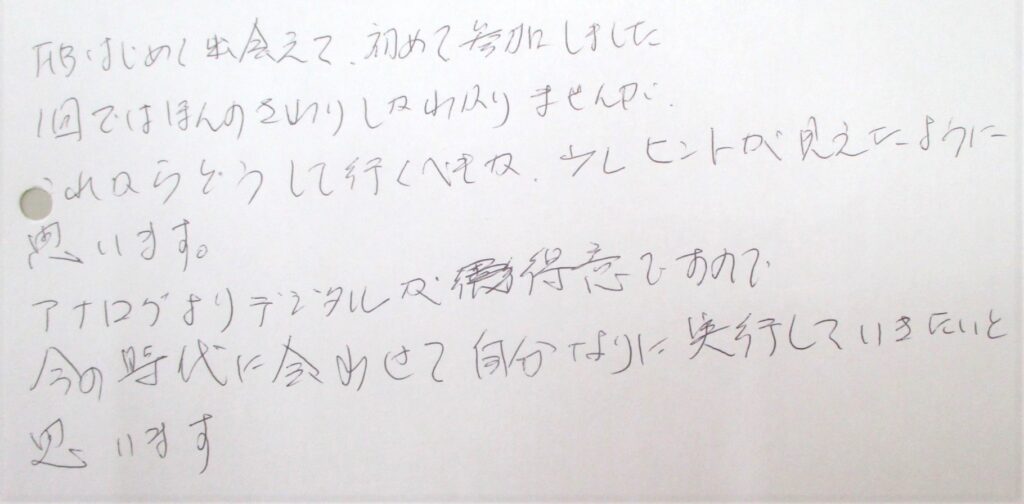 FBはじめて出会えて、初めて参加しました
1回ではほんのさわりしかわかりませんが、
これからどうして行くべきか、少しヒントが見えたように
思います。
アナログよりデジタルが得意ですので
今の時代に合わせて自分なりに実行していきたいと
思います